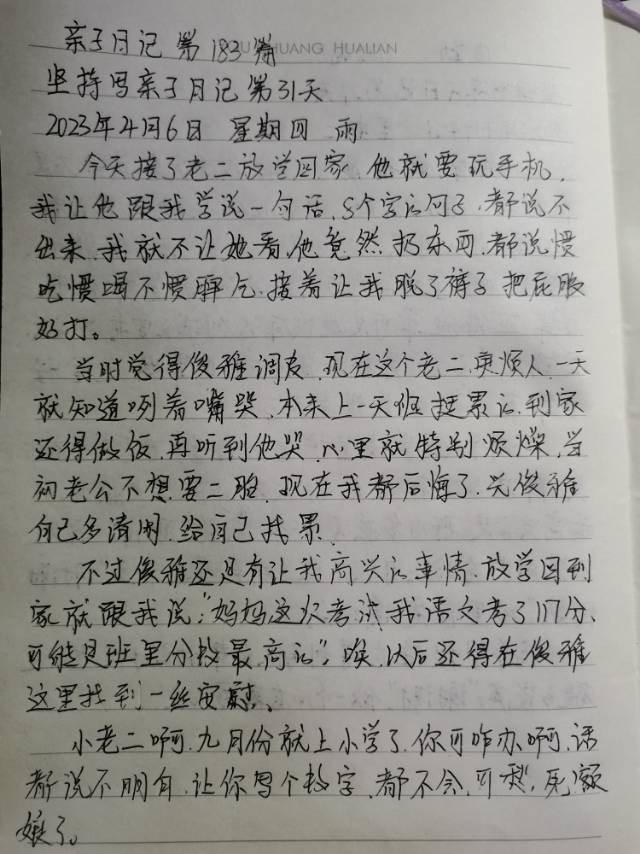 亲子日记第183篇
HUANG HUALIAN
坚持写亲子日记第31天
2023年4月6日 星期四 雨
今天接了老二放学回家,他就要玩手机,
我让他跟我学说一句话,5个字的句子,都说不
出来,我就不让她看,他竟然扔东西,都说惯
吃惯喝不惯脾气.接着让我脱了裤子把屁股
好打。
当时觉得俊雅调皮,现在这个老二更烦人,一天
就知道咧着嘴哭,本来上一天班挺累的,到家
还得做饭,再听到他哭,心里就特别烦燥,当
初老公不想要二胎,现在我都后悔了,光俊雅
自己多清闲,给自己找累,
不过俊雅还是有让我高兴的事情,放学回到
家就跟我说:"妈妈,这次考试我语文考了117分、
可能是班里分数最高的",唉,以后还得在俊雅
这里找到一丝安慰、
小老二啊,九月份就上小学了,你可咋办啊,话
都说不明白,让你写个数字,都不会,可愁,死
娘了。